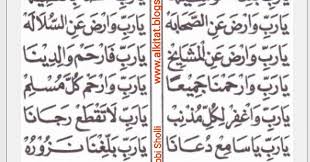 يَارَبِّ وَارْضَ عَنِ الصَّحَابَه يَارَبِّ وَارْضَ عَنِ السُّلَالَه
يَارَبِّ وَارْضَ عَنِ الْمَشَايِخ يَارَبِّ فَارْحَمْ وَالِدِينَا
يَارَبِّ وَارْحَمْنَا جَمِيعًا يَارَبِّ وَارْحَمْ كُلَّ مُسْلِم
يَارَبِّ وَاغْفِرْ لِكُلِّ مُذْنِب يَارَبِّ لَا تَقْطَعْ رَجَانَا
يَارَبِّ يَاسَامِعْ دُعَانَا يَارَبِّ بَلِّغْنَا نَزُورُهْ
www.alkitat.blogs
bbi Sholli